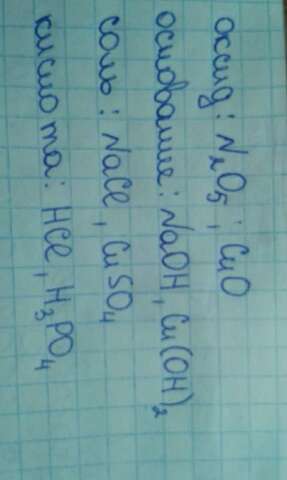 оксид: N₂O₅; CuO
основание: NaOH, Cu(OH)₂
соль: NaCl, CuSO₄
кислота: HCl, H₃PO₄